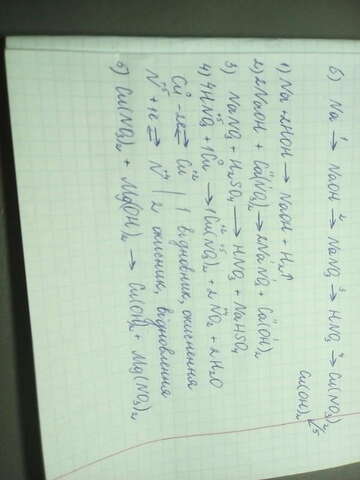 б) Na →¹ NaOH →² NaNO₃ →³ HNO₃ →⁴ Cu(NO₃)₂ →⁵
Cu(OH)₂
1) Na + 2HOH → NaOH + H₂↑
2) 2NaOH + Ca(NO₃)₂ → 2NaNO₃ + Ca(OH)₂
3) NaNO₃ + H₂SO₄ → HNO₃ + NaHSO₄
4) 4HNO₃ + 1Cu → 1Cu(NO₃)₂ + 2NO₂ + 2H₂O
Cu⁰ -2e ⇄ Cu⁺² | 1 відновник, окиснення
N⁺⁵ +1e ⇄ N⁺⁴ | 2 окисник, відновлення
5) Cu(NO₃)₂ + Mg(OH)₂ → Cu(OH)₂ + Mg(NO₃)₂